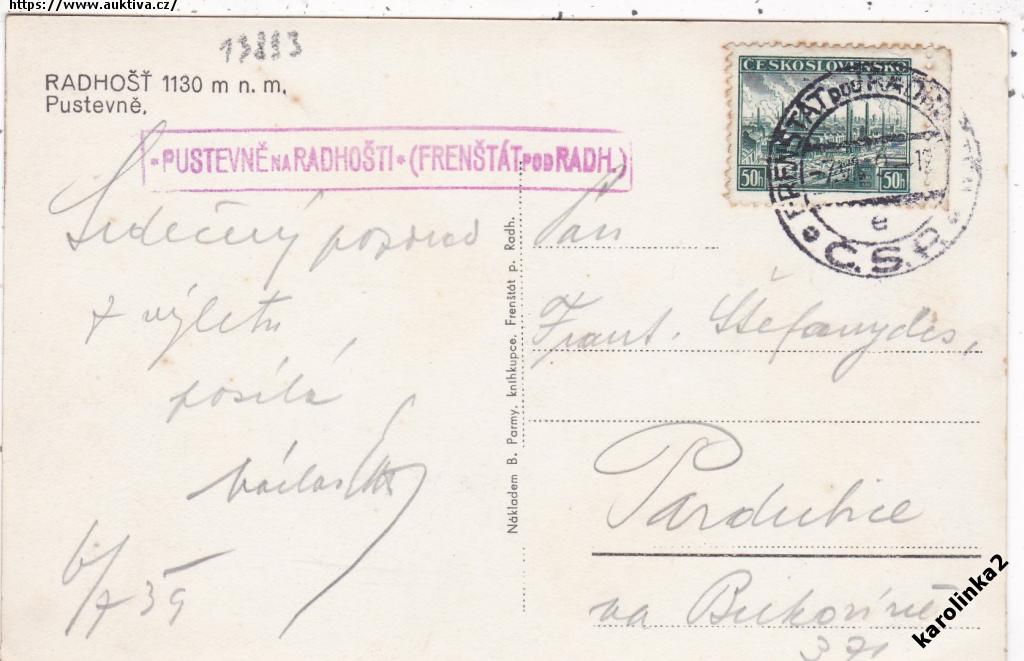 https://www.auktiva.cz/
13883
RADHOŠŤ 1130 m n. m.
Pustevně.
• PUSTEVNĚ NA RADHOŠTI • (FRENŠTÁT POD RADH.)
ČESKOSLOVENSKO
50h 50h
FRENŠTÁT POD RADH
e
Č.S.R.
Srdečný pozdrav
z výletu
posílá
6/7 39
Nákladem B. Parmy, knihkupce, Frenštát p. Radh.
Pan
Frant. Štefanydes,
Pardubice
na Bukovině
371
karolinka2